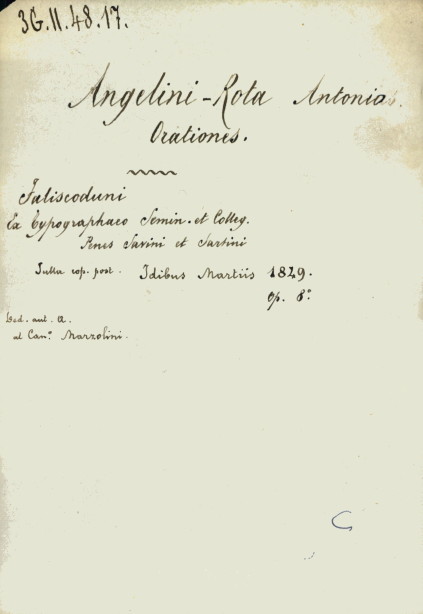 3G.II.48.17.
Angelini-Rota Antonius.
Orationes.
Faliscoduni
Ex typographaeo Semin. et Colleg.
Penes Savini et Sartini
Sulla cop. post. Idibus Martiis 1829.
op. 8°
Ded. aut. a.
al Can.º Marzolini.
C